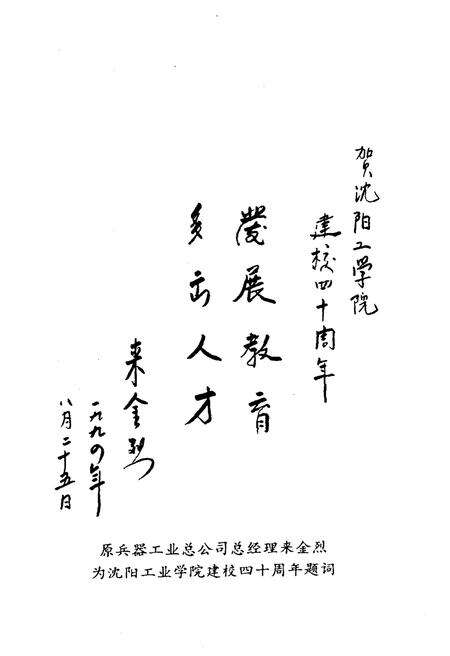 贺沈阳工学院
建校四十周年
發展教育
多出人才
来金烈
一九九〇年
八月二十五日
原兵器工业总公司总经理来金烈
为沈阳工业学院建校四十周年题词